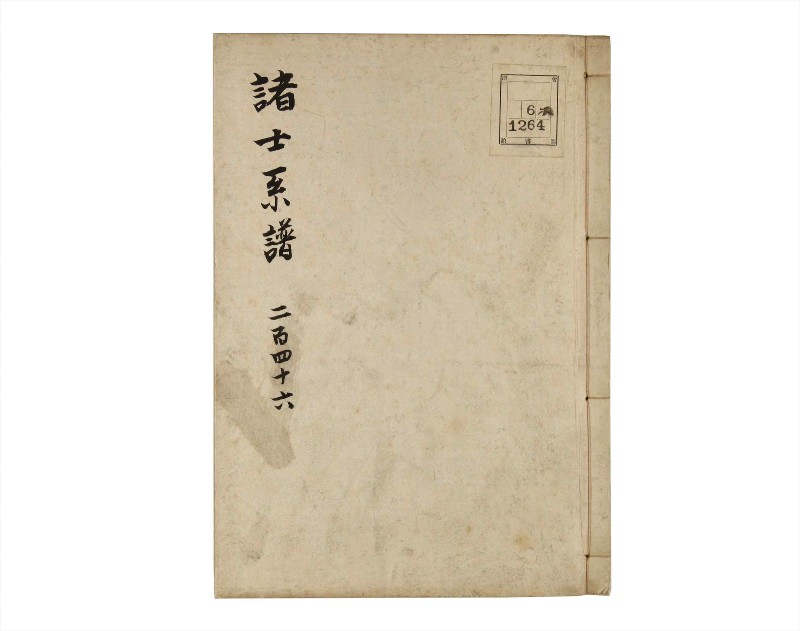 諸士系譜 二百四十六
6
1264